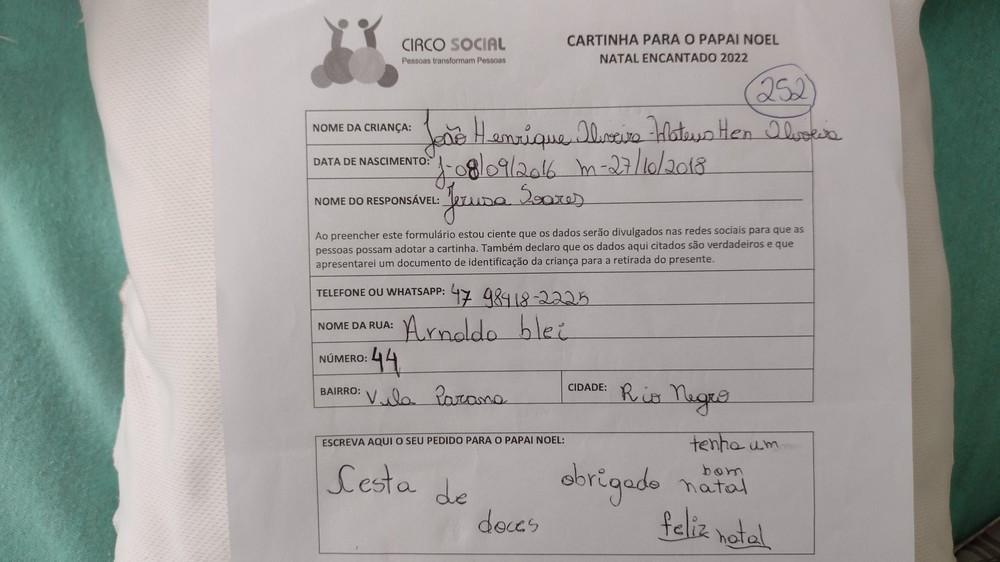 CIRCO SOCIAL
Pessoas transformam Pessoas
CARTINHA PARA O PAPAI NOEL
NATAL ENCANTADO 2022
252
NOME DA CRIANÇA: João Henrique Oliveira - Mateus Hen Oliveira
DATA DE NASCIMENTO: J-08/09/2016 m-27/10/2018
NOME DO RESPONSÁVEL: Jerusa Soares
Ao preencher este formulário estou ciente que os dados serão divulgados nas redes sociais para que as
pessoas possam adotar a cartinha. Também declaro que os dados aqui citados são verdadeiros e que
apresentarei um documento de identificação da criança para a retirada do presente.
TELEFONE OU WHATSAPP: 47 98418-2225
NOME DA RUA: Arnoldo blei
NÚMERO: 44
BAIRRO: Vila Parana CIDADE: Rio Negro
ESCREVA AQUI O SEU PEDIDO PARA O PAPAI NOEL:
Cesta de doces
obrigado
tenha um
bom
natal
feliz natal